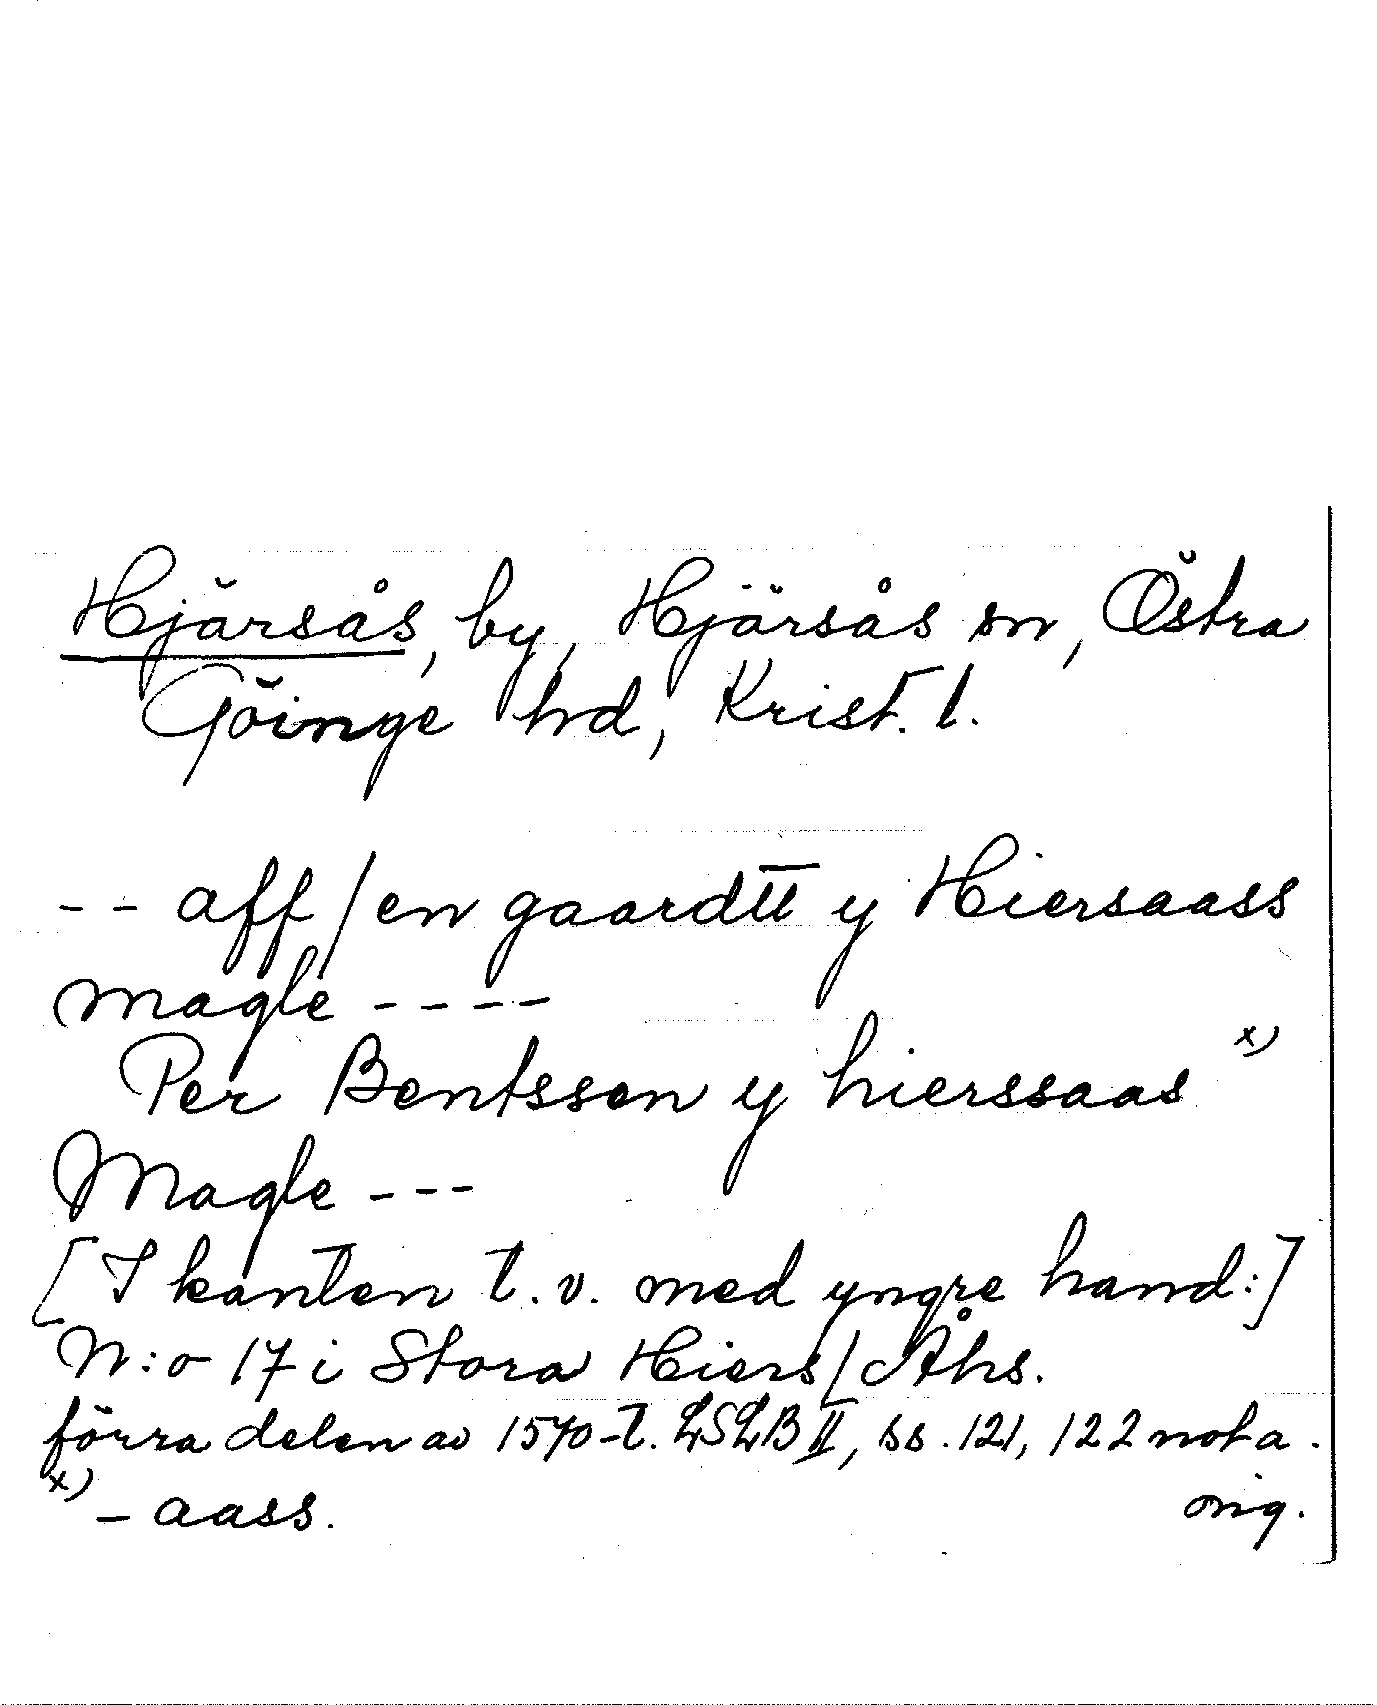 Hjärsås, by, Hjärsås sn, Östra
Göinge hd, Krist. l.
-- aff / en gaardtt y Hiersaass
magle ----
Per Bentssen y hierssaas x)
Magle ---
[I kanten t.v. med yngre hand:]
N:o 17 i Stora Hiers/Åhs.
förra delen av 1570-t. LSLB II, ss. 121, 122 nota.
x) -aass.
orig.